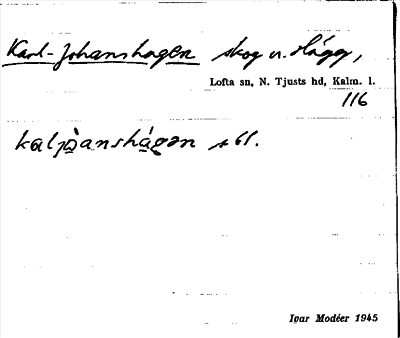 Karl-Johanshagen skog v. Hägg,
Lofta sn, N. Tjusts hd, Kalm. l.
116
kaljòanshágən s 61.
Ivar Modéer 1945